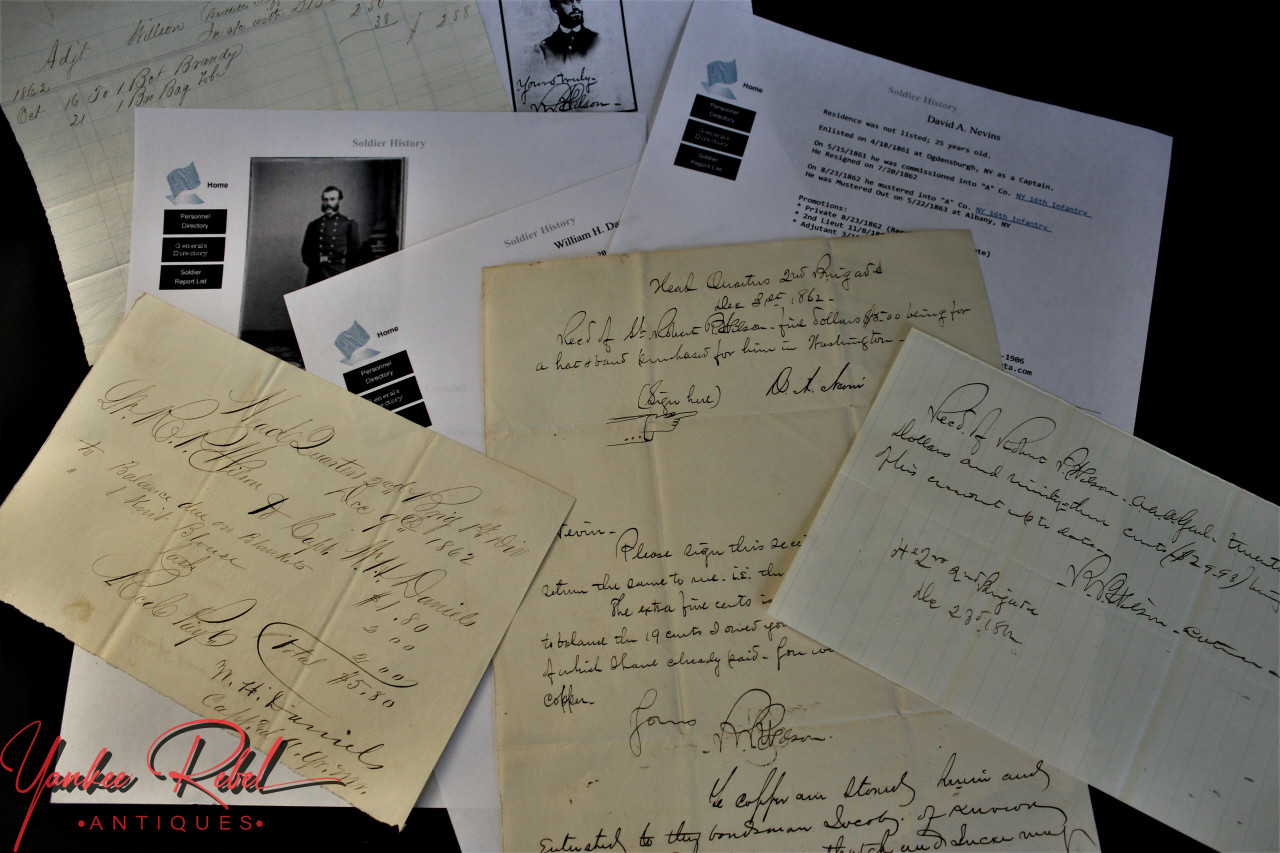 Adjt Willson
In a/c with
2 50
38
$ 2.88
1862
Oct 16 To 1 Bot. Brandy
21 1 Bag Tob
Yours truly
R P Wilson
Soldier History
Home
Personnel
Directory
Generals
Directory
Soldier
Report List
Soldier History
William H. Da
20
Home
Personnel
Directory
Generals
Directory
Soldier History
David A. Nevins
Home
Personnel
Directory
Generals
Directory
Soldier
Report List
Residence was not listed; 25 years old.
Enlisted on 4/18/1861 at Ogdensburgh, NY as a Captain.
On 5/15/1861 he was commissioned into "A" Co. NY 16th Infantry
He Resigned on 7/20/1862
On 8/23/1862 he mustered into "A" Co. NY 16th Infantry
He was Mustered Out on 5/22/1863 at Albany, NY
Promotions:
* Private 8/23/1862 (Re
* 2nd Lieut 11/8/1
* Adjutant 3/1
-1906
ta.com
Head Quarters 2nd Brigade
Dec 31st 1862-
Recd of Lt. Robert P. Wilson - five dollars $5.00 being for
a hat & band purchased for him in Washington-
(Sign here)
D. A. Nevin
Nevin-
Please sign this recei
return the same to me. i.e. the
The extra five cents is
to balance the 19 cents I owed you
of which I have already paid- you
copper-
Yours
R. P. Wilson.
copper
Entrusted to thy bondsman
Head Quarters 2nd Brig 1st Div
Dec 9th 1862
Lt. R. P. Wilson
To Capt W. H. Daniels
To Balance due on Blankets $1.80
" 1 Knit Blouse 2 00
Cash 2.00
Total $5.80
Recd Payt
W. H. Daniels
Capt
Recd. of Robert P. Wilson. a.a.a.Genl. twenty
Dollars and ninety three cents ($29.93) being
this amount up to date.
R. P. Wilson-
Hd Qrs 2nd Brigade
Dec 23d 1862
Yankee Rebel
•ANTIQUES•